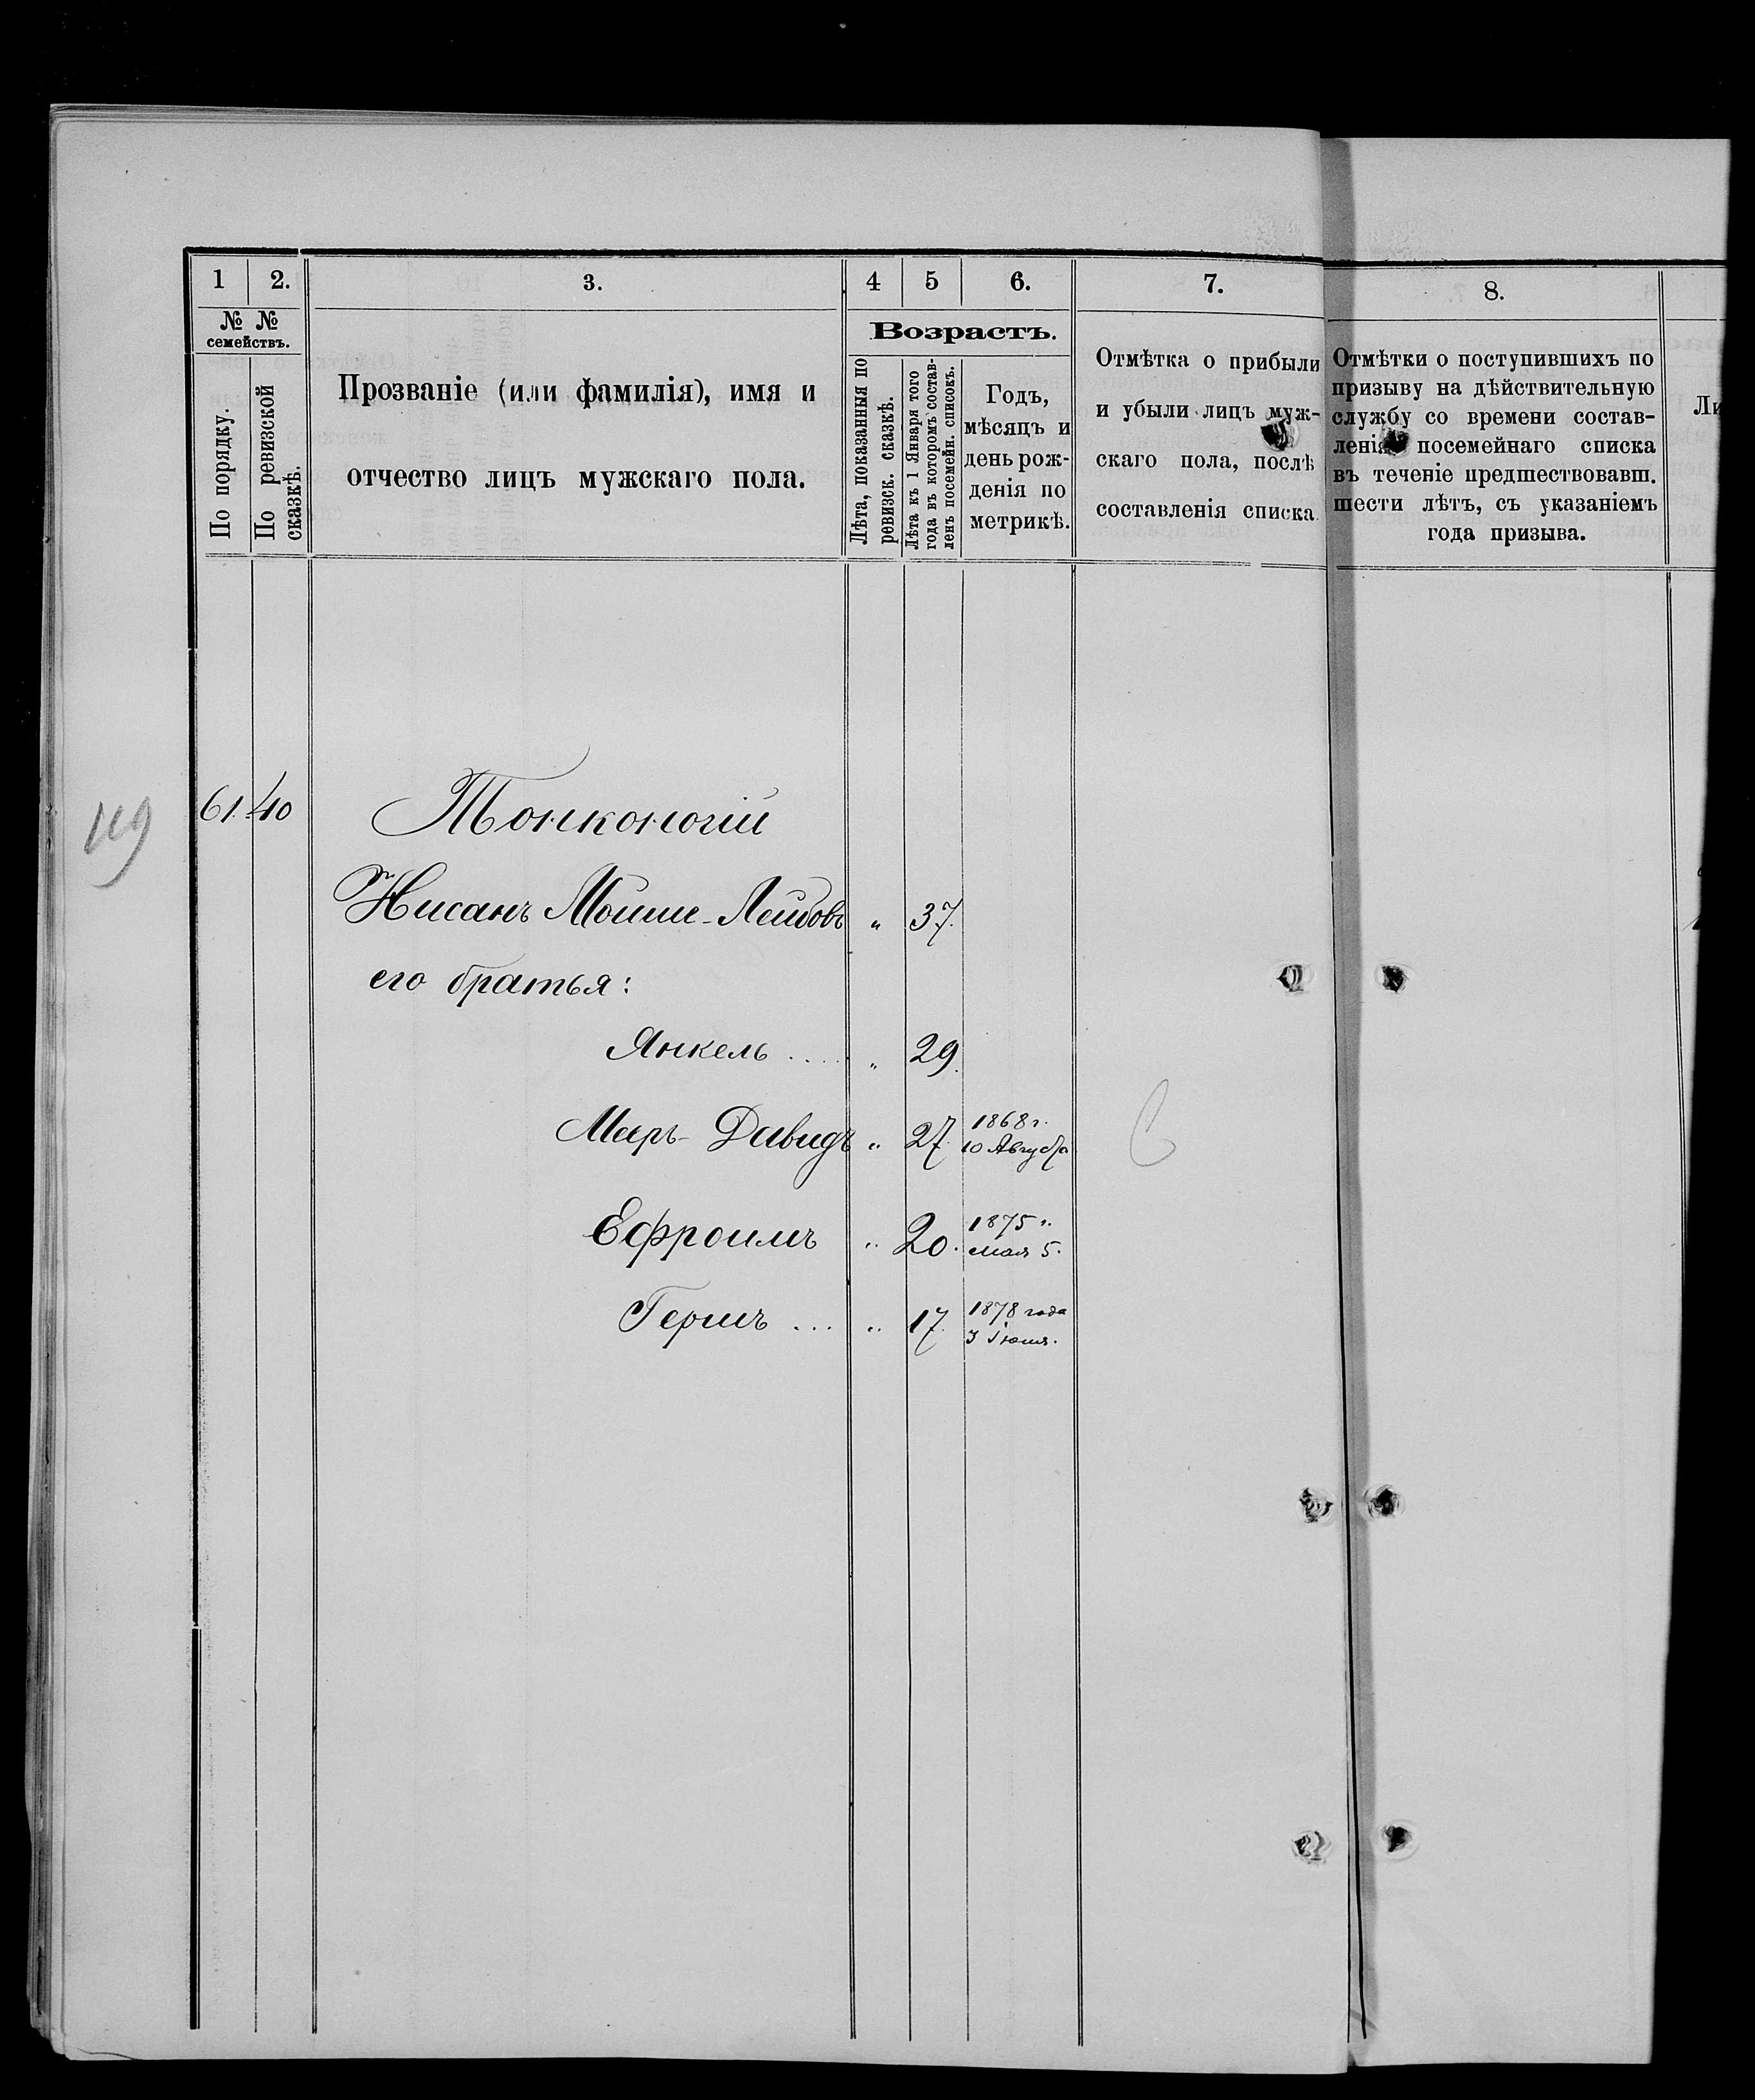 1 2. 3. 4 5 6. 7. 8.
№ №
семействъ.
По порядку.
По ревизской
сказкѣ.
Прозваніе (или фамилія), имя и
отчество лицъ мужскаго пола.
Возрастъ.
Лѣта, показанныя по
ревизск. сказкѣ.
Лѣта къ 1 Января того
года въ которомъ состав-
ленъ посемейн. списокъ.
Годъ,
мѣсяцъ и
день рож-
денія по
метрикѣ.
Отмѣтка о прибыли
и убыли лицъ муж-
скаго пола, послѣ
составленія списка.
Отмѣтки о поступившихъ по
призыву на дѣйствительную
службу со времени состав-
ленія посемейнаго списка
въ теченіе предшествовавш.
шести лѣтъ, съ указаніемъ
года призыва.
Ли
119
61. 40 Тонконогій
Нисанъ Мошие-Лейбовъ „ 37.
его братья:
Янкель .... „ 29.
Меерь-Давидъ „ 27. 1868 г.
10 Августа
Ефроимъ „ 20. 1875 г.
мая 5.
Гершъ ... „ 17. 1878 года
3 Іюня.